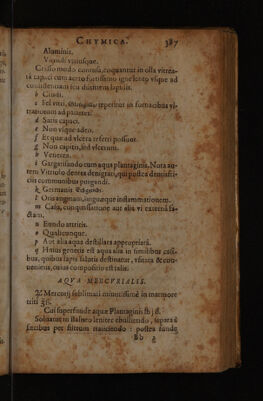 CHYMICA. 387
Aluminis.
Vitrioli vtriusque.
Crasso modo contusa, coquantur in olla vitrea-
ta capaci cum aceto fortissimo igne lento vsque ad
condensationem seu duritiem lapidis.
b Cineri.
c Sel vitri, reperitur in fornacibus vi-
d Satis capaci.
e Non vsque adeo.
f Et quæ ad vlcera referri possunt.
g Non capitis, sed vlcerum.
h Venerea.
i Gargarisando cum aqua plantaginis. Nota au-
tem Vitriolo dentes denigrari, qui postea dentifri-
ciis communibus purgandi.
k Germanis
l Oris anginam, linguæque inflammationem.
m Casu, conquassatione aut alia vi externa fa-
ctam.
n Eundo attritis.
o Qualiscunque.
p Aut alia aqua destillata appropriata.
q Huius generis est aqua alia in similibus casi-
bus, quibus lapis salutis destinatur, vsitata & con-
ueniens, cuius compositio est talis.
AQVA MERCVRIALIS.
℞ Mercurij sublimati minutissimè in marmore
triti ℥ß.
Cui superfunde aquæ Plantaginis ℔ j ß.
Soluatur in Balneo leniter ebulliendo, separa à
fæcibus per filtrum traiiciendo : postea funde
Bb 2